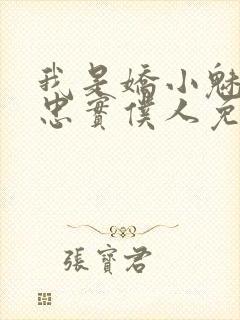 我是嬌小魅
忠實僕人免
張寶君